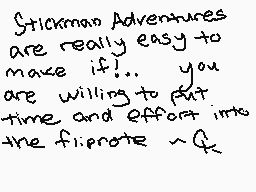 Stickman Adventures
are really easy to
make if!... you
are willing to put
time and effort into
the flipnote ~